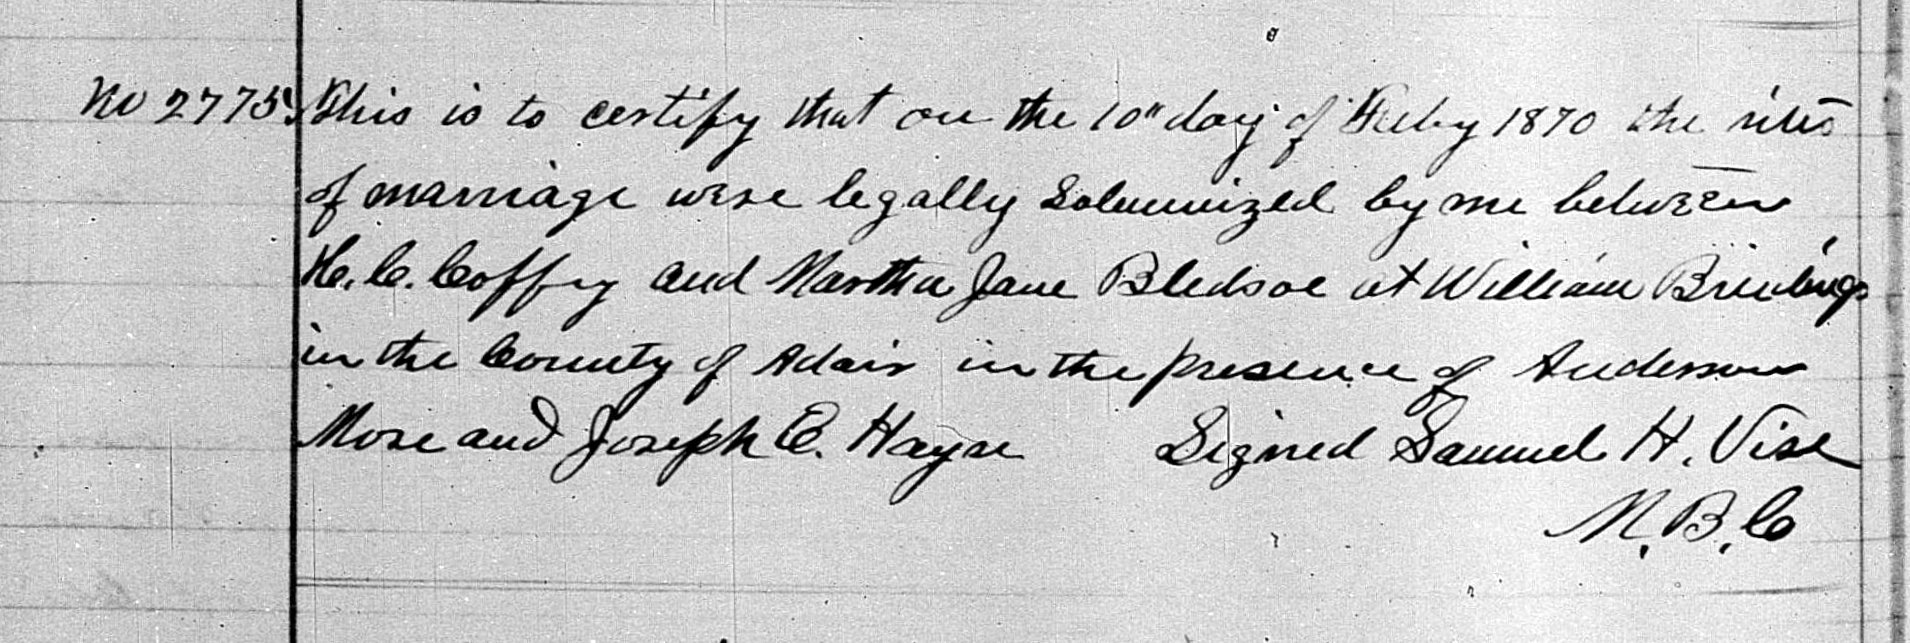 No 2775. This is to certify that on the 10" day of Feby 1870 the rites
of marriage were legally Solemnized by me between
H. C. Coffey and Martha Jane Bledsoe at William
in the County of Adair in the presence of Anderson
More and Joseph E. Hayse Signed Samuel H. Vise
M. B. C